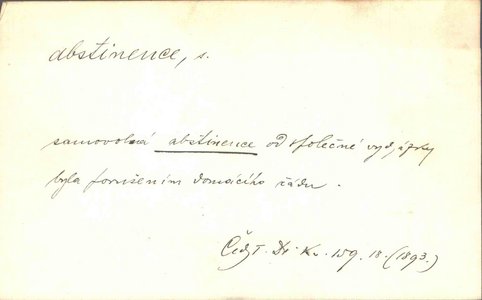 abstinence, s.
samovolná abstinence od společné
byla porušením domácího řádu.
Kv. 159. 18. (1893.)